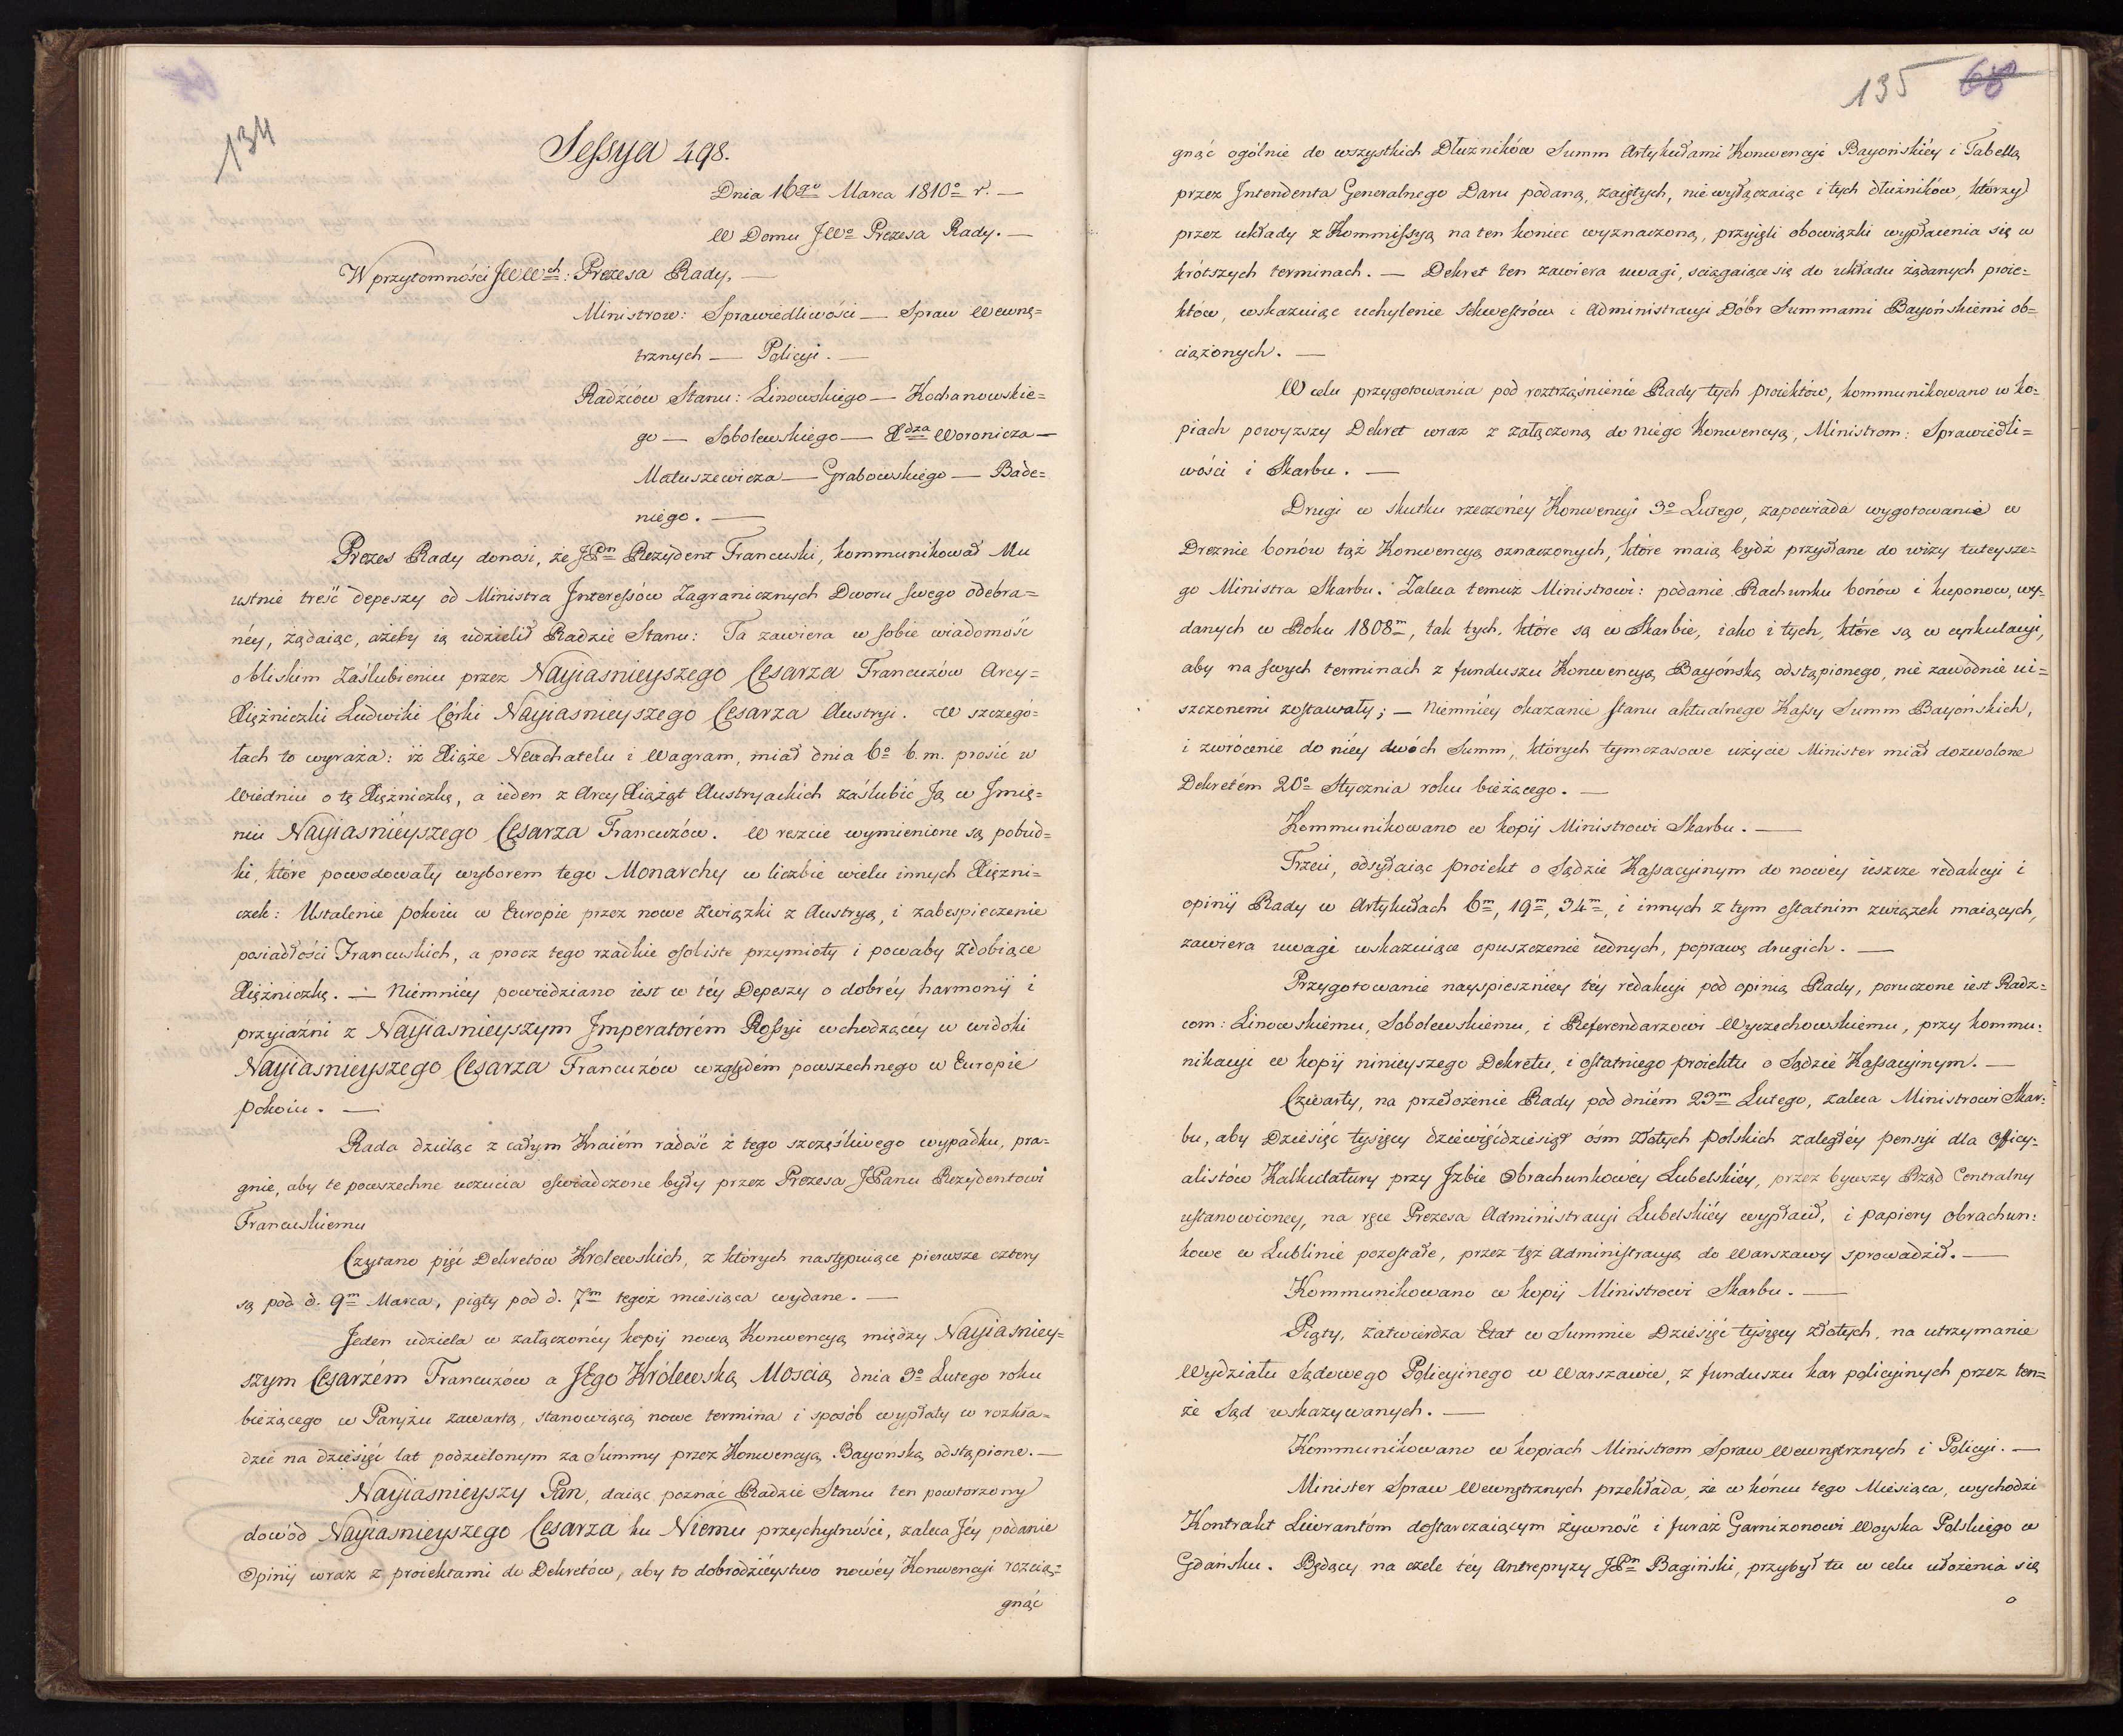 134
Sessya 298.
Dnia 16go Marca 1810o r. —
W Domu JWo Prezesa Rady. —
W przytomności JWWch: Prezesa Rady, —
Ministrow: Sprawiedliwości — Spraw Wewnę=
trznych — Policyi. —
Radźców Stanu: Linowskiego — Kochanowskie=
go — Sobolewskiego — Xdza Woronicza —
Matuszewicza — Grabowskiego — Bade=
niego. —
Prezes Rady donosi, że JPn Rezydent Francuski, kommunikował Mu
ustnie treść depeszy od Ministra Interessów Zagranicznych Dworu swego odebra=
néy, żądaiąc, ażeby ią udzielił Radzie Stanu: Ta zawiera w sobie wiadomość
o bliskim Zaślubieniu przez Nayiasnieyszego Cesarza Francuzów Arcy=
Xiężniczki Ludwiki Córki Nayiasnieyszego Cesarza Austryi. W szczegó=
łach to wyraża: iż Xiąże Neuchatelu i Wagram, miał dnia 6o b. m. prosić w
Wiedniu o tę Xiężniczkę, a ieden z Arcy Xiążąt Austryackich zaślubić Ją w Imię=
niu Nayiasniéyszego Cesarza Francuzów. W reszcie wymienione są pobud=
ki, które powodowały wyborem tego Monarchy w liczbie wielu innych Xiężni=
czek: Ustalenie pokoiu w Europie przez nowe Związki z Austryą, i zabespieczenie
posiadłości Francuskich, a procz tego rzadkie osobiste przymioty i powaby zdobiące
Xiężniczkę. — Niemniey powiedziano iest w téy Depeszy o dobréy harmonij i
przyiaźni z Nayiasnieyszym Imperatorém Rossyi wchodzącéy w widoki
Nayiasnieyszego Cesarza Francuzów względém powszechnego w Europie
pokoiu. —
Rada dzieląc z całym Kraiém radość z tego szczęśliwego wypadku, pra=
gnie, aby te powszechne uczucia oświadczone były przez Prezesa JPanu Rezydentowi
Francuskiemu
Czytano pięć Dekretów Krolewskich, z których następuiące pierwsze cztery
są pod d. 9m Marca, piąty pod d. 7m tegoż miesiąca wydane. —
Jeden udziela w załączonéy kopij nową Konwencyą między Nayiasniey=
szym Cesarzém Francuzów a Jego Królewską Moscią dnia 3o Lutego roku
bieżącego w Paryżu zawartą, stanowiącą nowe termina i sposób wypłaty w rozkła=
dzie na dziesięć lat podzielonym za Summy przez Konwencyą Bayonską odstąpione. —
Nayiasnieyszy Pan, daiąc poznać Radzie Stanu ten powtorzony
dowód Nayiasnieyszego Cesarza ku Niemu przychylności, zaleca Jéy podanie
Opinij wraz z proiektami do Dekretów, aby to dobrodziéystwo nowéy Konwencyi rozcią=
gnąć
135 68
gnąć ogólnie do wszystkich Dłużników Summ Artykułami Konwencyi Bayońskiéy i Tabellą
przez Intendenta Generalnego Daru podaną, zaiętych, nie wyłączaiąc i tych dłużników, którzy
przez układy z Kommissyą na ten koniec wyznaczoną, przyięli obowiązki wypłacenia się w
krótszych terminach. — Dekret ten zawiera uwagi, sciągaiące się do układu żądanych proie=
któw, wskazuiąc uchylenie Sekwestrów i Administracyi Dóbr Summami Bayońskiemi ob=
ciążonych. —
W celu przygotowania pod roztrząśnienie Rady tych proiektów, kommunikowano w ko=
piach powyzszy Dekret wraz z załączoną do niego Konwencyą, Ministrom: Sprawiedli=
wości i Skarbu. —
Drugi w skutku rzeczonéy Konwencyi 3o Lutego, zapowiada wygotowanie w
Dreznie bonów tąż Konwencyą oznaczonych, które maią bydź przysłane do wizy tuteysze=
go Ministra Skarbu. Zaleca temuż Ministrowi: podanie Rachunku bonów i kuponow, wy=
danych w Roku 1808m, tak tych, które są w Skarbie, iako i tych, które są w cyrkulacyi,
aby na swych terminach z funduszu Konwencyą Bayońską odstąpionego, nie zawodnie ui=
szczonemi zostawały; — Niemniéy okazanie stanu aktualnego Kassy Summ Bayońskich,
i zwrócenie do niéy dwóch Summ, których tymczasowe użycie Minister miał dozwolone
Dekretém 20o Stycznia roku bieżącego. —
Kommunikowano w kopij Ministrowi Skarbu. —
Trzeci, odsyłaiąc proiekt o Sądzie Kassacyinym do nowéy ieszcze redakcyi i
opinij Rady w Artykułach 6m, 19m, 34m, i innych z tym ostatnim związek maiących,
zawiera uwagi wskazuiące opuszczenie iednych, poprawę drugich. —
Przygotowanie nayspieszniéy téy redakcyi pod opinią Rady, poruczone iest Radz=
com: Linowskiemu, Sobolewskiemu, i Referendarzowi Wyczechowskiemu, przy kommu=
nikacyi w kopij ninieyszego Dekretu, i ostatniego proiektu o Sądzie Kassacyinym. —
Czwarty, na przełożenie Rady pod dniém 23m Lutego, zaleca Ministrowi Skar=
bu, aby Dziesięć tysięcy dziewięćdziesiąt ośm Złotych Polskich zaległéy pensyi dla Officy=
alistów Kalkulatury przy Izbie Obrachunkowéy Lubelskiéy, przez bywszy Rząd Centralny
ustanowioney, na ręce Prezesa Administracyi Lubelskiéy wypłacił, i papiery obrachun=
kowe w Lublinie pozostałe, przez tęż Administracyą do Warszawy sprowadził. —
Kommunikowano w kopij Ministrowi Skarbu. —
Piąty, zatwierdza Etat w Summie Dziesięć tysięcy Złotych, na utrzymanie
Wydziału Sądowego Policyinego w Warszawie, z funduszu kar policyinych przez ten=
że Sąd wskazywanych. —
Kommunikowano w kopiach Ministrom Spraw Wewnętrznych i Policyi. —
Minister Spraw Wewnętrznych przekłada, że w końcu tego Miesiąca, wychodzi
Kontrakt Liwrantóm dostarczaiącym żywność i furaż Garnizonowi Woyska Polskiego w
Gdańsku. Będący na czele téy Antrepryzy JPn Bagiński, przybył tu w celu ułożenia się
o